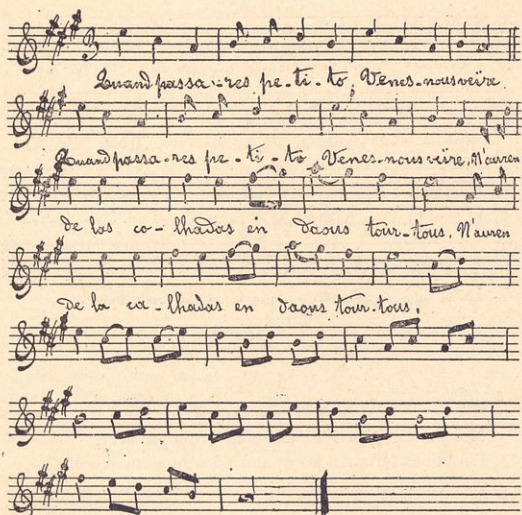 Quand passa-res pe-ti-to, Venes-nous veïre
Quand passa-res pe-ti-to Venes-nous veïre, N'auren
de las co-lhadas en daous tour-tous, N'auren
de la ca-lhadas en daous tour-tous.